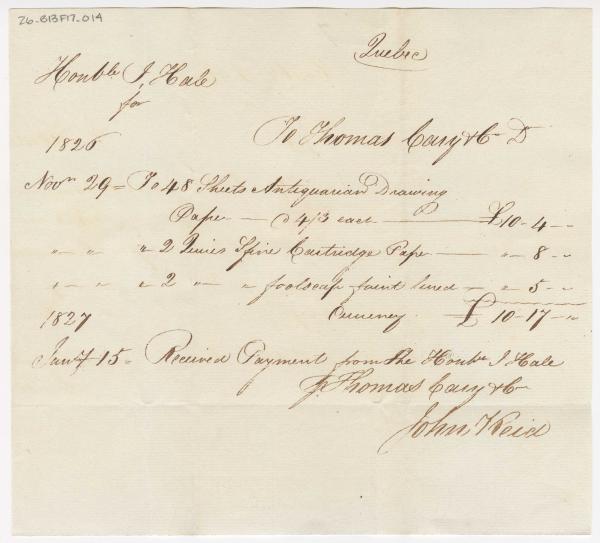 Z6-B13F17.014
Quebec
Honble J. Hale
for
1826
To Thomas Cary & Co Dr
Novr 29 = To 48 Sheets Antiquarian Drawing
Paper — @ 4/3 each — £10-4-"
" " " 2 Quires Fine Cartridge Paper — " 8-"
" " " 2 " " foolscap faint lined — " 5-"
1827
Currency — £ 10-17-"
Jany 15 = Received Payment from the Honble J. Hale
pr Thomas Cary & Co
John Reid